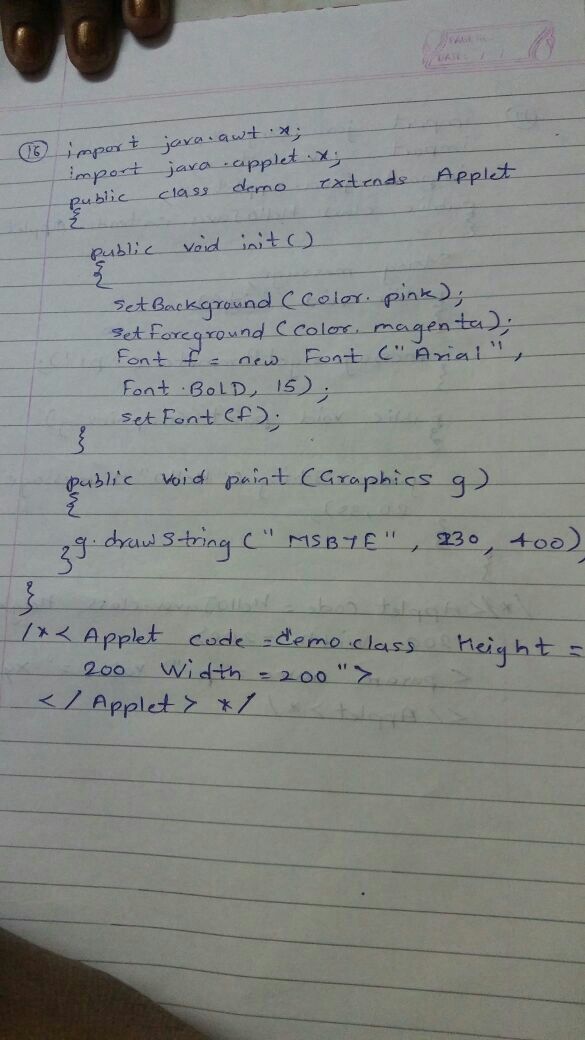 PAGE No.
DATE: / /
16 import java.awt.*;
import java.applet.*;
public class demo extends Applet
{
public void init()
{
setBackground (Color. pink);
setForeground (Color. magenta);
Font f = new Font ("Arial",
Font.BOLD, 15);
setFont (f);
}
public void paint (Graphics g)
{
g.drawString (" MSBTE", 230, 400);
}
}
/*< Applet code =demo.class Height =
200 Width = 200 ">
</ Applet> */